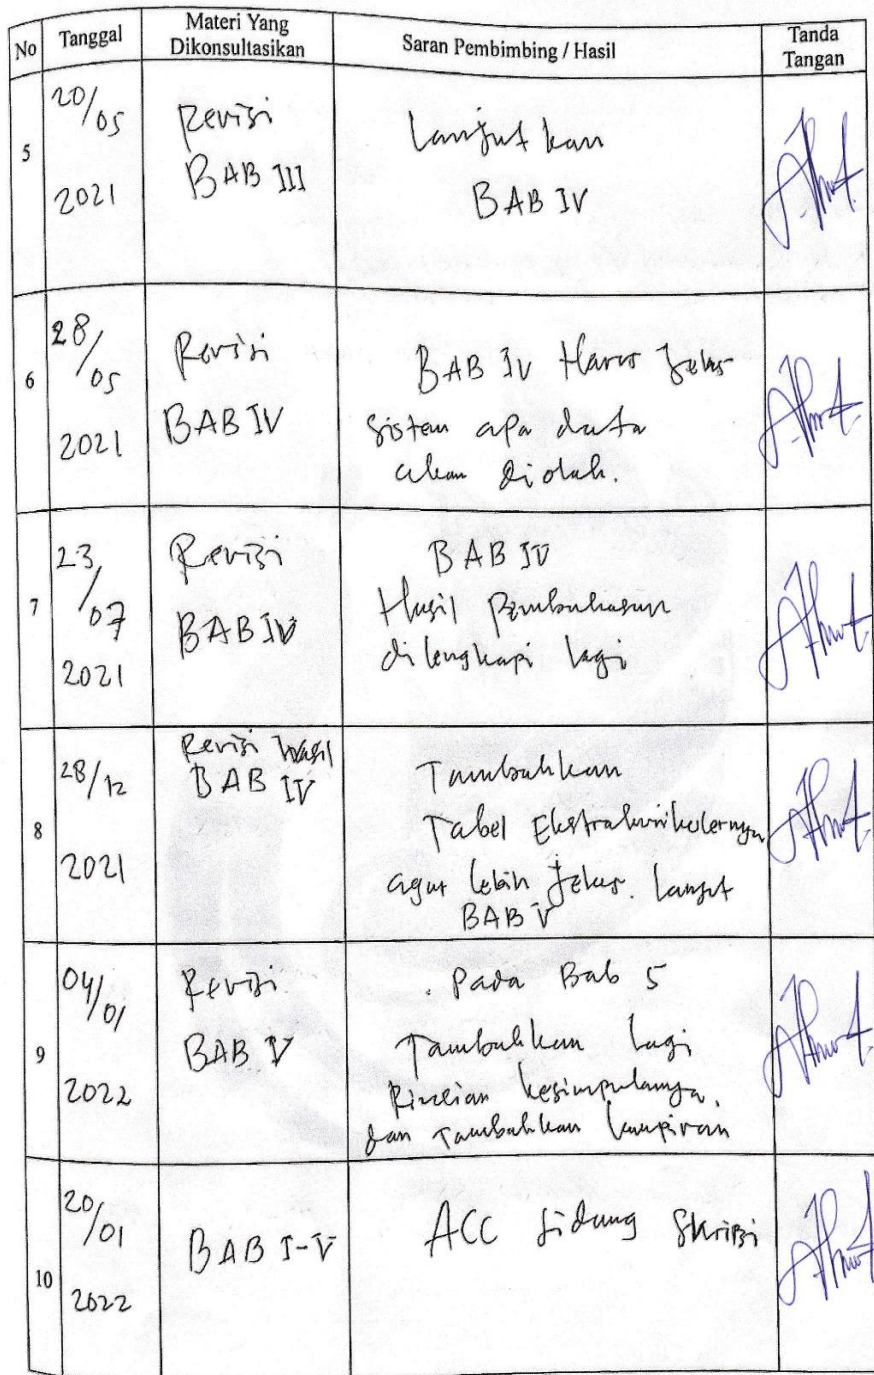 No
Tanggal
Materi Yang
Dikonsultasikan
Saran Pembimbing / Hasil
Tanda
Tangan
5
20/05
2021
Revisi
BAB III
Lanjutkan
BAB IV
6
28/05
2021
Revisi
BAB IV
BAB IV Harus Jelas
sistem apa data
akan diolah.
7
23/07
2021
Revisi
BAB IV
BAB IV
Hasil Pembahasan
dilengkapi lagi
8
28/12
2021
Revisi hasil
BAB IV
Tambahkan
Tabel Ekstrakurikulernya
agar lebih Jelas. Lanjut
BAB V
9
04/01
2022
Revisi
BAB V
Pada Bab 5
Tambahkan lagi
Rincian kesimpulannya.
dan Tambahkan lampiran
10
20/01
2022
BAB I-V
ACC Sidang Skripsi